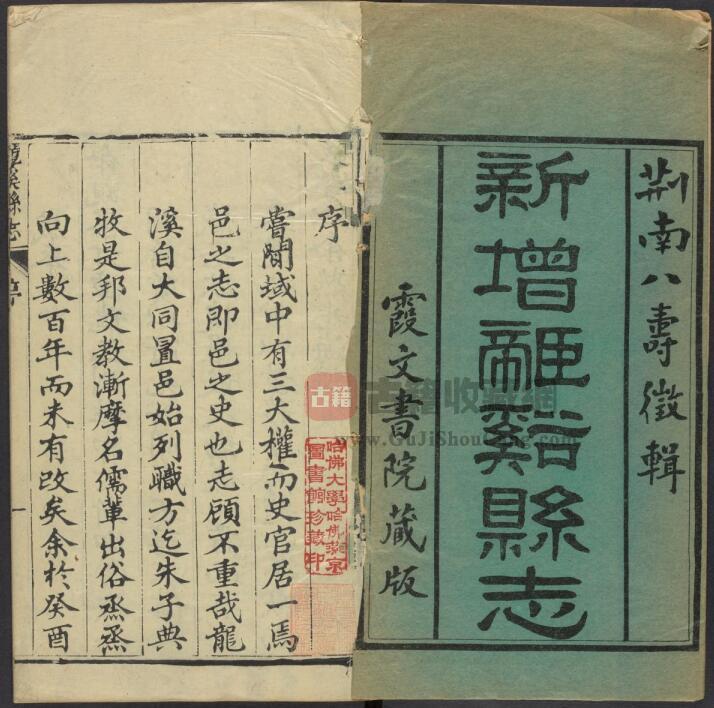 荆南八壽徵輯
新增龍谿縣志
霞文書院藏版
序
嘗聞域中有三大權而史官居一焉
邑之志即邑之史也志顧不重哉龍
溪自大同置邑始列職方迄朱子典
牧是邦文教漸摩名儒輩出俗烝烝
向上數百年而未有改矣余於癸酉
溪縣志
序
一
哈佛大學哈佛燕京
圖書館珍藏印
古籍
古籍收藏網
www.GuJiShouCang.com